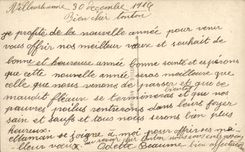 Villeurbanne, 30 décembre 1914
Bien cher tonton
je profite de la nouvelle année pour venir
vous offrir nos meilleur vœux et souhait de
bonne et heureuse année bonne santé et espérons
que cette nouvelle année sera meilleure que
celle que nous venons de passer et que ce
maudit fléau se terminera et que nos
pauvres poilus rentrerons dans leurs foyer
sain et saufs et tous nous serons bien plus
heureux.
Maman se joigne à moi pour offrir es
lleur vœux
Odette Beaume bien affectueu